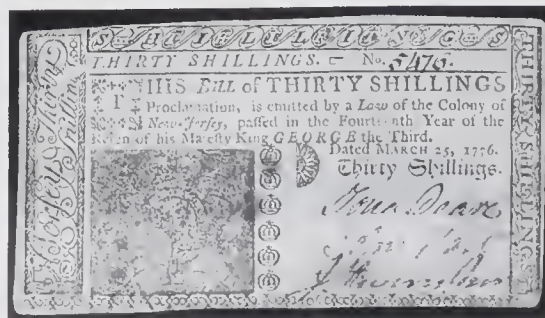 SHILLINGS
THIRTY SHILLINGS. No. 5476.
THIS Bill of THIRTY SHILLINGS
Proclamation, is emitted by a Law of the Colony of
New-Jersey, passed in the Fourteenth Year of the
Reign of his Majesty King GEORGE the Third.
Dated MARCH 25, 1776.
Thirty Shillings.
THIRTY SHILLINGS